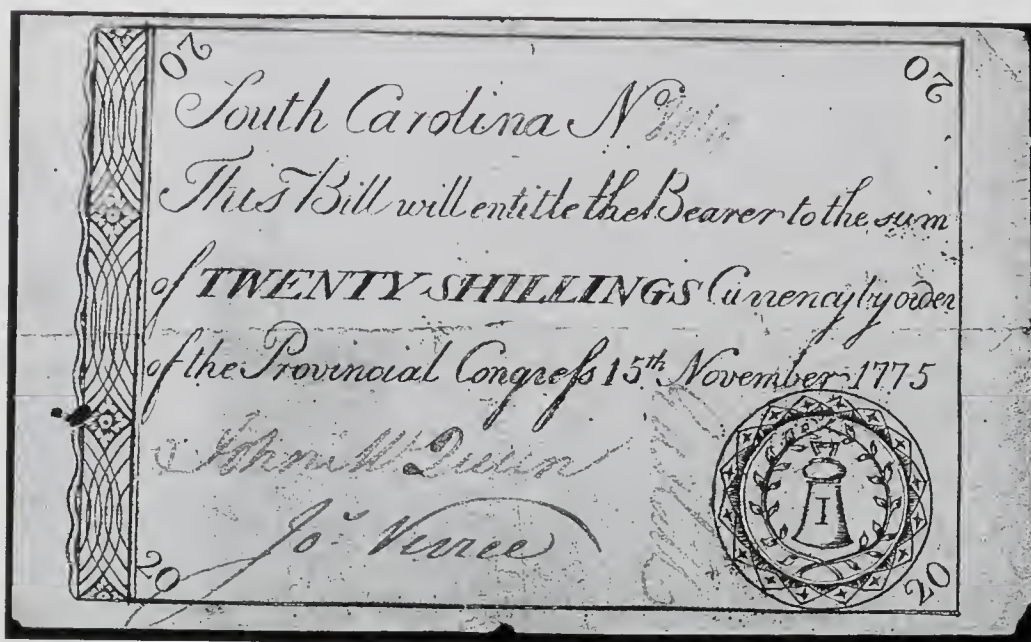 20 20
South Carolina No
This Bill will entitle the Bearer to the sum
of TWENTY SHILLINGS Currency by order
of the Provincial Congreſs 15th November 1775
Jos. Verree
I
20 20